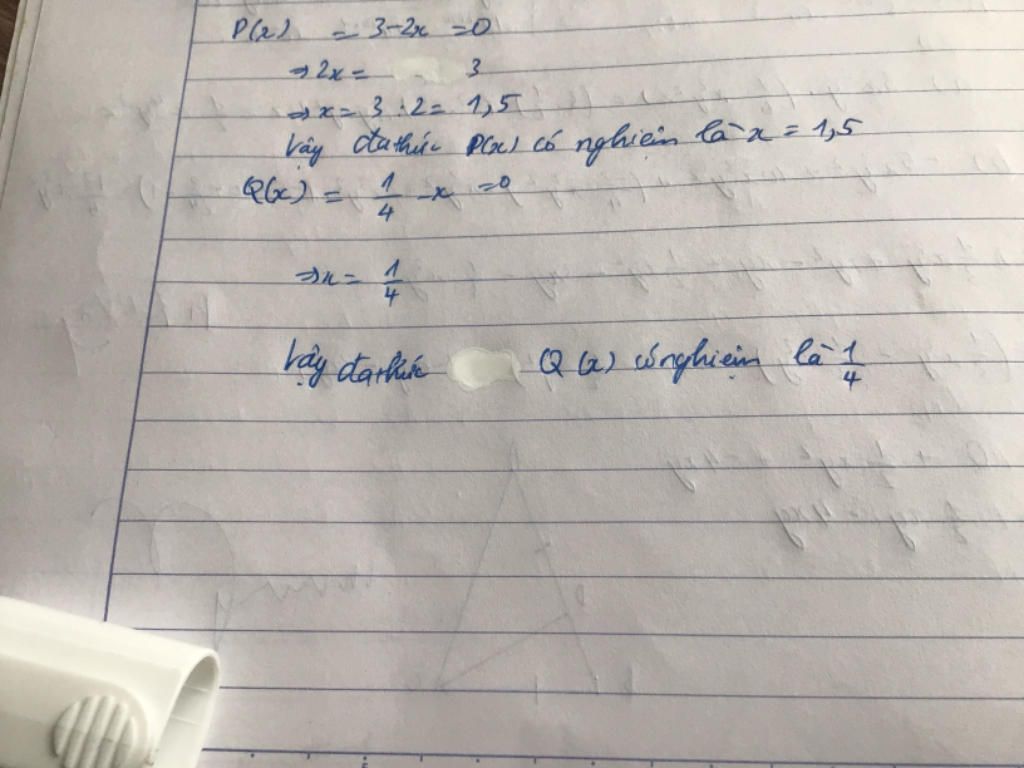 P(x) = 3-2x =0
⇒ 2x = 3
⇒ x = 3 : 2 = 1,5
Vậy đa thức P(x) có nghiệm là x = 1,5
Q(x) = 1/4 - x =0
⇒ x = 1/4
Vậy đa thức Q(x) có nghiệm là 1/4